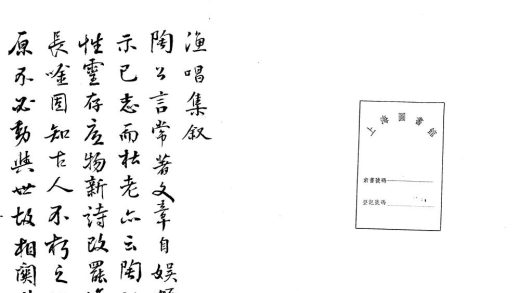 漁唱集叙
陶公言常著文章自娛
示已志而杜老亦云陶
性靈存底物新詩改罷
長唫固知古人不朽之
原不必動與世故相關
學圖書館
書號碼
登記號碼